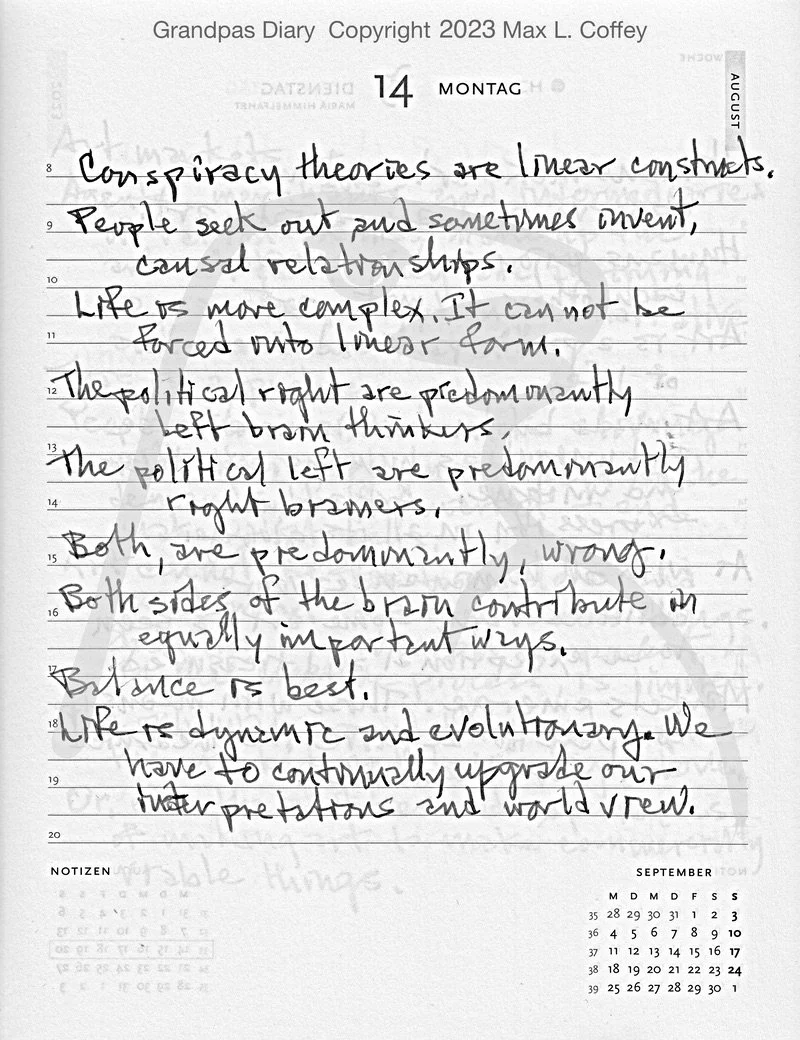 Grandpas Diary Copyright 2023 Max L. Coffey
14 MONTAG
AUGUST
8 Conspiracy theories are linear constructs.
9 People seek out and sometimes invent,
causal relationships.
10
Life is more complex. It can not be
11 forced into linear form.
12 The political right are predominantly
left brain thinkers.
13
The political left are predominantly
14 right brainers.
15 Both, are predominantly, wrong.
16 Both sides of the brain contribute in
equally important ways.
17 Balance is best.
18 Life is dynamic and evolutionary. We
have to continually upgrade our
19
interpretations and world view.
20
NOTIZEN
SEPTEMBER
M D M D F S S
35 28 29 30 31 1 2 3
36 4 5 6 7 8 9 10
37 11 12 13 14 15 16 17
38 18 19 20 21 22 23 24
39 25 26 27 28 29 30 1